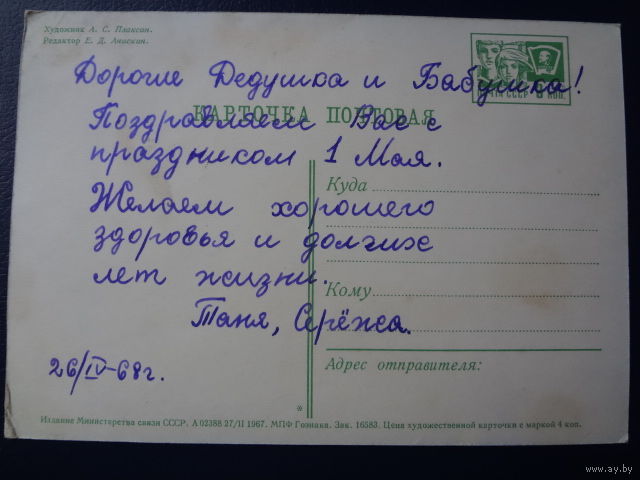 Художник А. С. Плаксин.
Редактор Е. Д. Анискин.
ПОЧТА СССР 3 КОП.
Дорогие Дедушка и Бабушка!
КАРТОЧКА ПОЧТОВАЯ
Поздравляем Вас с
праздником 1 Мая.
Желаем хорошего
здоровья и долгих
лет жизни.
Таня, Серёжа.
26/IV-68г.
Куда
Кому
Адрес отправителя:
*
Издание Министерства связи СССР. А 02388 27/II 1967. МПФ Гознака. Зак. 16583. Цена художественной карточки с маркой 4 коп.
www.ay.by